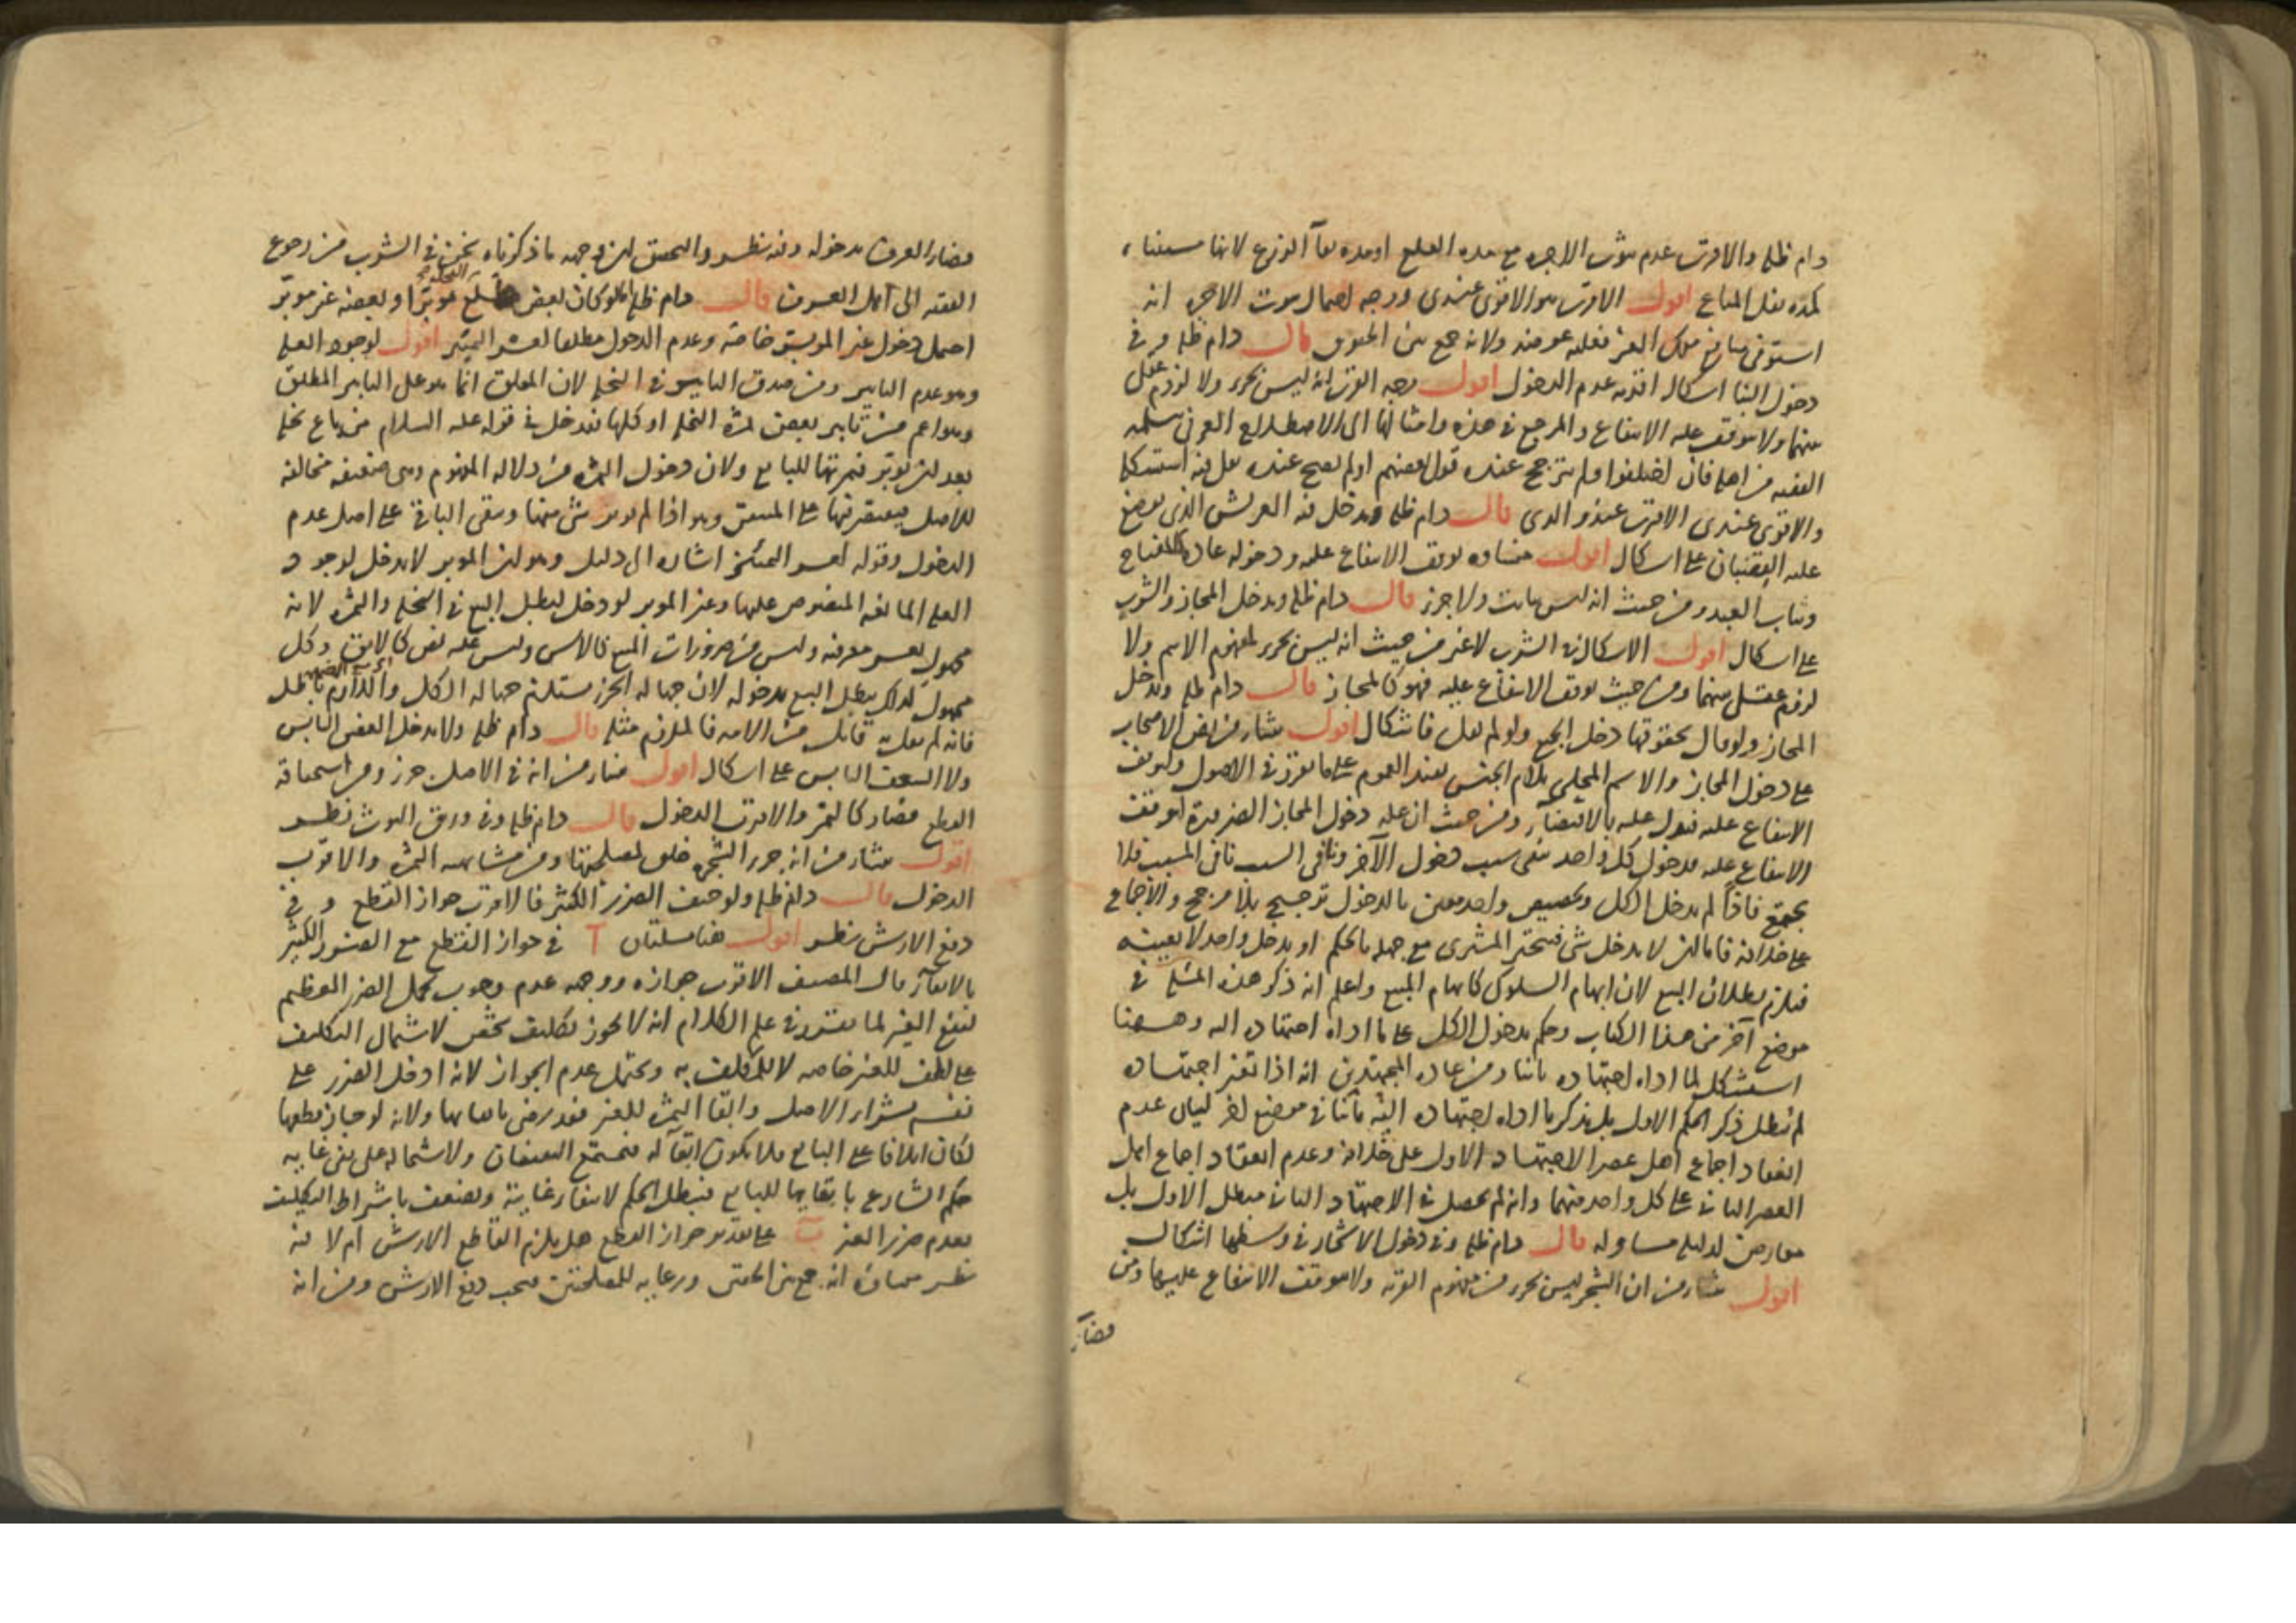 دام ظله والاقرب عدم ثبوت الاجرة مع مدة القلع او مدة بقاء الزرع لانها مستثناة
كمدة نقل المتاع اقول الاقرب هو الاقوى عندى ووجه احتمال ثبوت الاجرة انه
استوفى منافع ملك الغير فعليه عوضه ولانه جمع بين الحقوق قال دام ظله وفى
دخول البناء اشكال اقربه عدم الدخول اقول وجه القرب انه ليس بجزء ولا لزوم عقلى
بينهما ولا يتوقف عليه الانتفاع والمرجع فى هذه وامثالها الى الاصطلاح العرفى يتسلمه
الفقيه من اهله فان اختلفوا ولم يترجح عنده قول بعضهم اولم يصح عنده نقل فيه استشكل
والاقوى عندى الاقرب عند والدى قال دام ظله ويدخل فيه العريش الذى يوضع
عليه القضبان على اشكال اقول منشاؤه توقف الانتفاع عليه ودخوله عادة كالمفتاح
وثياب العبد ومن حيث انه ليس بثابت ولا جزء قال دام ظله ويدخل المجاز والشرب
على اشكال اقول الاشكال فى الشرب لا غير من حيث انه ليس بجزء لمفهوم الاسم ولا
لزوم عقلى بينهما ومن حيث توقف الانتفاع عليه فهو كالمجاز قال دام ظله ويدخل
المجاز ولو قال بحقوقها دخل الجميع ولو لم يقل فاشكال اقول ينشأ من نص الاصحاب
على دخول المجاز والاسم المحلى بلام الجنس يفيد العموم على ما تقرر فى الاصول ولتوقف
الانتفاع عليه فيدل عليه بالاقتضاء ومن حيث ان علة دخول المجاز الضرورة لتوقف
الانتفاع عليه فدخول كل واحد ينفى سبب دخول الآخر ونافى السبب نافى المسبب فلا
يجتمع فاذا لم يدخل الكل وتخصيص واحد معين بالدخول ترجيح بلا مرجح والاجماع
على خلافه فاما ان لا يدخل شئ فيتخير المشترى مع جهله بالحكم او يدخل واحد لا بعينه
فيلزم بطلان البيع لان ابهام السلوك كابهام المبيع واعلم انه ذكر هذه المسئلة فى
موضع آخر من هذا الكتاب وحكم بدخول الكل على ما اداه اجتهاده اليه وههنا
استشكل لما اداه اجتهاده ثانيا ومن عادة المجتهدين انه اذا تغير اجتهاده
لم يبطل ذكر الحكم الاول بل يذكر ما اداه اجتهاده اليه ثانيا فى موضع آخر لبيان عدم
انعقاد اجماع اهل عصر الاجتهاد الاول على خلافه وعدم انعقاد اجماع اهل
العصر الثانى على كل واحد منهما وانه لم يحصل فى الاجتهاد الثانى مبطل الاول بل
معارض لدليله مساو له قال دام ظله وفى دخول الاشجار فى وسطها اشكال
اقول ينشأ من ان الشجر ليس بجزء من مفهوم القرية ولا يتوقف الانتفاع عليها ومن
قضاء
قضاء العرف بدخوله وفيه نظر والتحقيق ان وجهه ما ذكرناه نحن فى الشرب من رجوع
الفقيه الى اهل العرف قال دام ظله لو كان بعض طلع النخلة مؤبرا وبعضه غير مؤبر
احتمل دخول غير المؤبر خاصة وعدم الدخول مطلقا لعسر التمييز اقول لوجود العلة
وهو عدم التأبير ومن صدق التأبير فى النخلة لان المعلق انما هو على التأبير المطلق
وهو اعم من تأبير بعض ثمرة النخلة او كلها فتدخل فى قوله عليه السلام من باع نخلا
بعد ان يؤبر فثمرتها للبايع ولان دخول الثمرة من دلالة المفهوم وهى ضعيفة مخالفة
للاصل فيقتصر فيها على المتيقن وهو اذا لم يؤبر شئ منها ويبقى الباقى على اصل عدم
الدخول وقوله لعسر التمييز اشارة الى دليل وهو ان المؤبر لا يدخل لوجود
العلة المانعة المنصوص عليها وغير المؤبر لو دخل لبطل البيع فى النخلة والثمرة لانه
مجهول لعسر معرفته وليس من ضرورات المبيع كالاس وليس عليه نص كالابق وكل
مجهول كذلك يبطل البيع بدخوله لان جهالة الجزء يستلزم جهالة الكل واللازم باطل
فانه لم يقل به قائل من الامة فالملزوم مثله قال دام ظله ولا يدخل الغصن اليابس
ولا السعف اليابس على اشكال اقول ينشأ من انه فى الاصل جزء ومن استحقاقه
القطع فصار كالثمر والاقرب الدخول قال دام ظله وفى ورق التوت نظر
اقول ينشأ من انه جزء الشجرة خلق لمصلحتها ومن مشابهته الثمرة والاقرب
الدخول قال دام ظله ولو خيف الضرر الكثير فالاقرب جواز القطع وفى
دفع الارش نظر اقول هنا مسئلتان آ فى جواز القطع مع الضرر الكثير
بالابقاء قال المصنف الاقرب جوازه ووجهه عدم وجوب تحمل الضرر العظيم
لنفع الغير لما تقرر فى علم الكلام انه لا يجوز تكليف شخص لاشتمال التكليف
على لطف للغير خاصة لا للمكلف به ويحتمل عدم الجواز لانه ادخل الضرر على
نفسه بشراء الاصل وابقاء الثمرة للغير فقد رضى بابقائها ولانه لو جاز قطعها
لكان اتلافا على البايع فلا يكون ابقاء له فيجتمع النقيضان ولاشتماله على نفى غاية
حكم الشارع بابقائها للبايع فيبطل الحكم لانتفاء غايته ويضعف باشتراط التكليف
بعدم ضرر الغير ب على تقدير جواز القطع هل يلزم القاطع الارش ام لا فيه
نظر منشاؤه انه جمع بين الحقين ورعاية للمصلحتين فيجب دفع الارش ومن انه